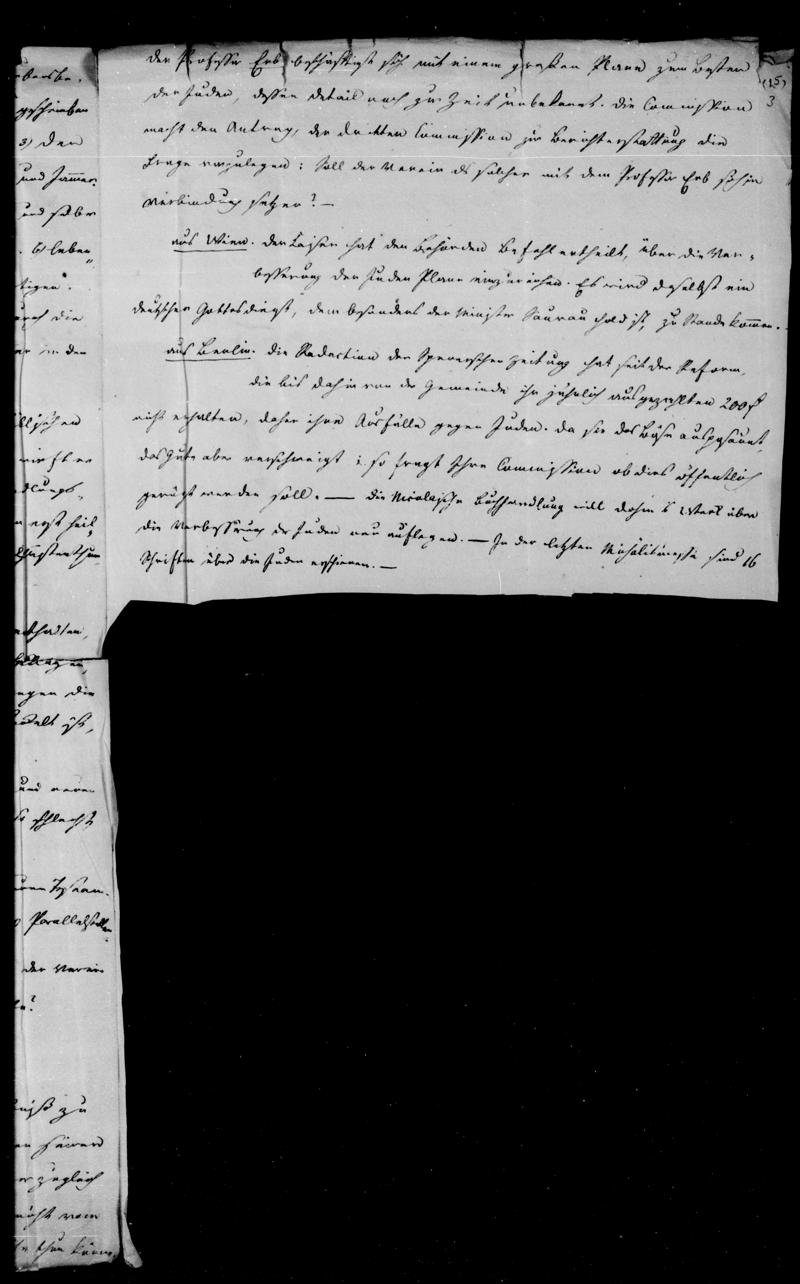 (15)
3
der Professor Erb beschäftigt sich mit einem großen Plane zum Besten
der Juden, dessen Detail noch zur Zeit unbekannt. die Commission
macht den Antrag, der dritten Commission zur Berichterstattung die
Frage vorzulegen: Soll der Verein als solcher mit dem Professor Erb sich in
Verbindung setzen? —
aus Wien. der Kaiser hat den Behörden Befehl ertheilt, über die Ver-
besserung der Juden Plane einzureichen. Es wird daselbst ein
deutscher Gottesdienst, dem besonders der Minister Saurau hold ist, zu Stande kommen.
aus Berlin. die Redaction der Spenerschen Zeitung hat seit der Reform,
die bis dahin von der Gemeinde ihr jährlich ausgezahlten 200
nicht erhalten, daher ihre Ausfälle gegen Juden. da sie das Böse ausposaunt,
das Gute aber verschweigt; so fragt Ihre Commission ob dies öffentlich
gerügt werden soll. — die Nicolaische Buchhandlung will dohm's Werk über
die Verbesserung der Juden neu auflegen. — In der letzten Michälismesse sind 16
Schriften über die Juden erschienen. —
3) der
und Jammer
und selber
leben
tigen".
durch die
in den
heil
enthalten,
gen die
ist,
und
schlecht
Parallelstellen
der Verein
zu
zugleich
nicht vom
thun